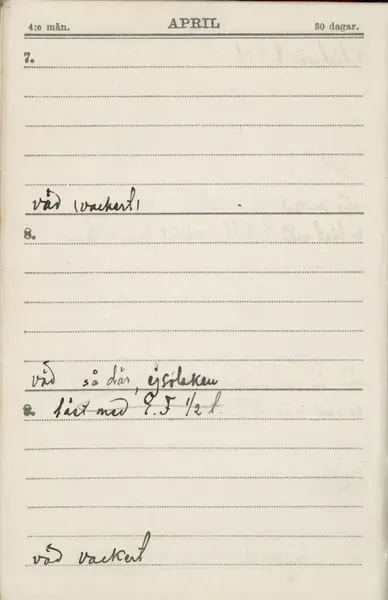 4:e mån. APRIL 30 dagar.
7.
väd (vackert)
8.
väd så där, ej
9. läst med E. F 1/2 t.
väd vackert